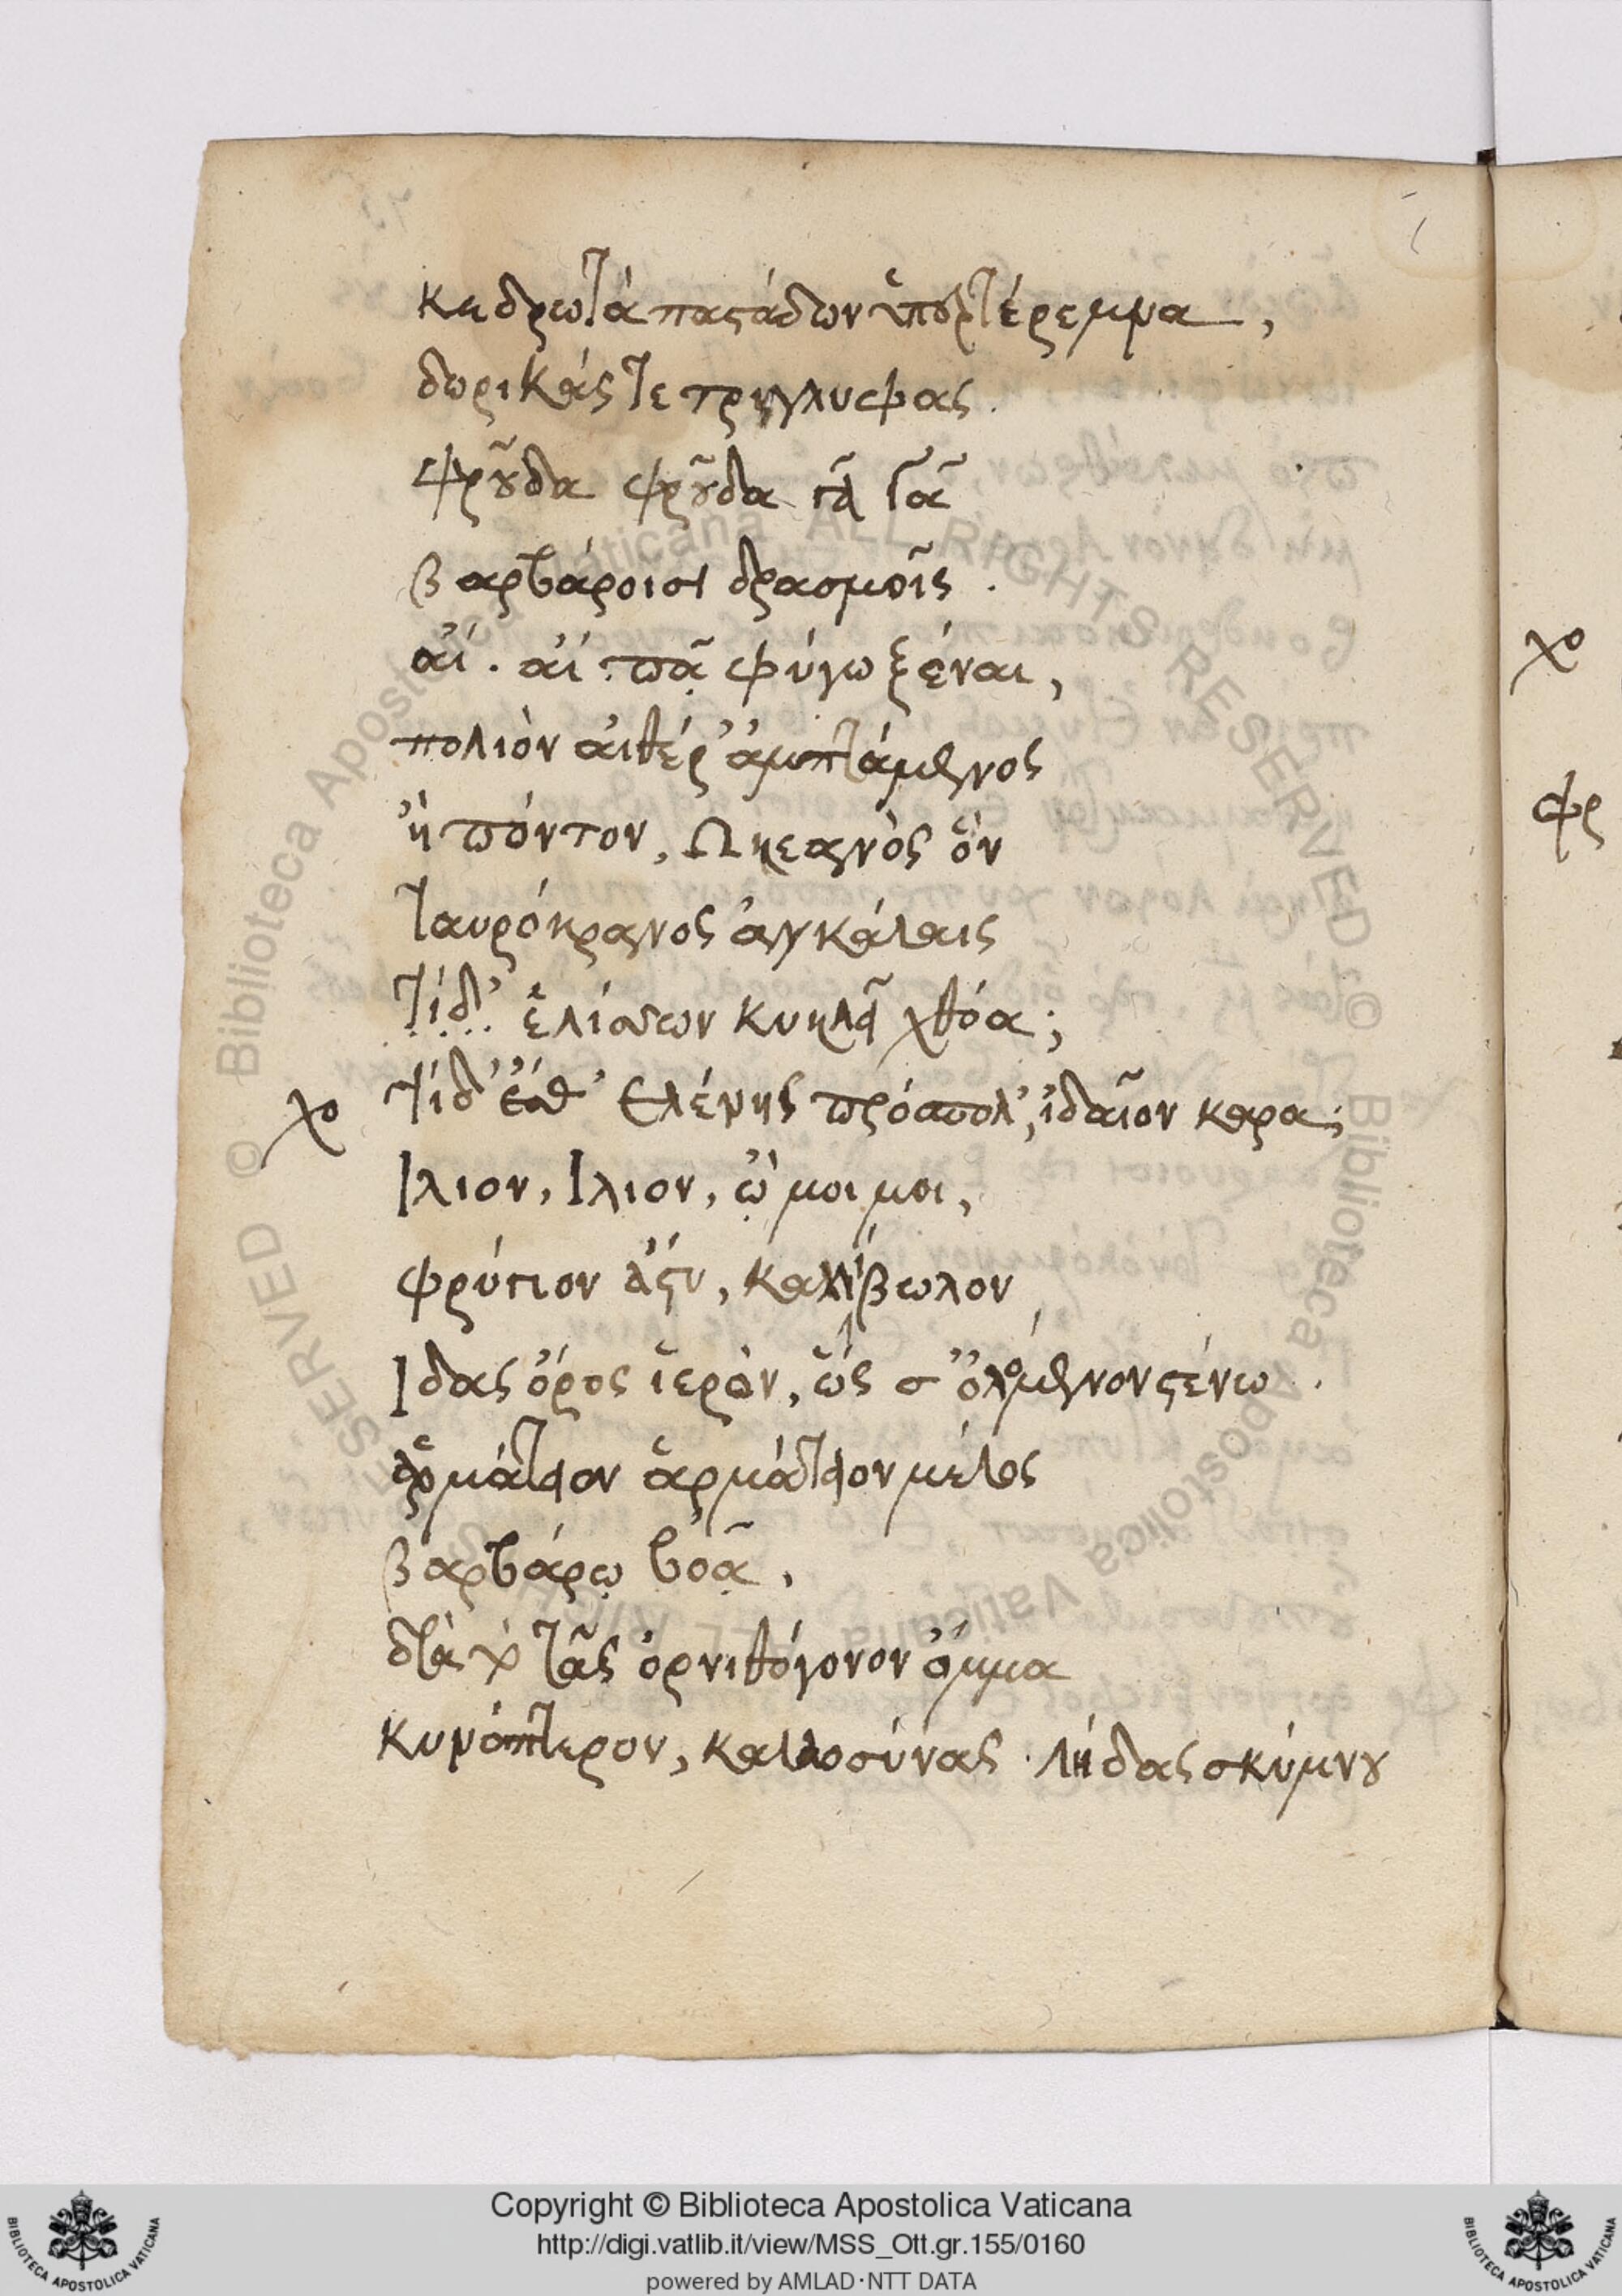 κηδρωτὰ παστάδων ὑπὲρ τέρεμμα,
δωρικάς τε τριγλυφας.
φροῦδα φροῦδα γᾶ γᾶ
βαρβάροισι δρασμοῖς.
αἴ. αἴ. πᾷ φύγω ξέναι,
πολιὸν αἰθέρ' ἀμπτάμενος
ἢ πόντον, Ωκεανὸς ὃν
ταυρόκρανος ἀγκάλαις
τίδ' ἑλίσσων κυκλεῖ χθόα;
χο τίδ' ἔσθ' Ελένης πρόσπολ', ἰδαῖον καρα;
Ιλιον, Ιλιον, ὤ μοι μοι,
φρύγιον ἄστυ, καλλίβωλον
Ιδας ὄρος ἱερὸν, ὥς σ' ὀλόμενον στένω.
ἁρμάτειον ἁρμάτειον μέλος
βαρβάρῳ βοᾷ,
διὰ τὸ τᾶς ὀρνιθόγονον ὄμμα
κυκνόπτερον, καλλοσύνας. λήδας σκύμνου
χο
φρ
Copyright © Biblioteca Apostolica Vaticana
http://digi.vatlib.it/view/MSS_Ott.gr.155/0160
powered by AMLAD·NTT DATA
BIBLIOTECA APOSTOLICA VATICANA
BIBLIOTECA APOSTOLICA VATICANA
© Biblioteca Apostolica Vaticana ALL RIGHTS RESERVED
© Biblioteca Apostolica Vaticana ALL RIGHTS RESERVED